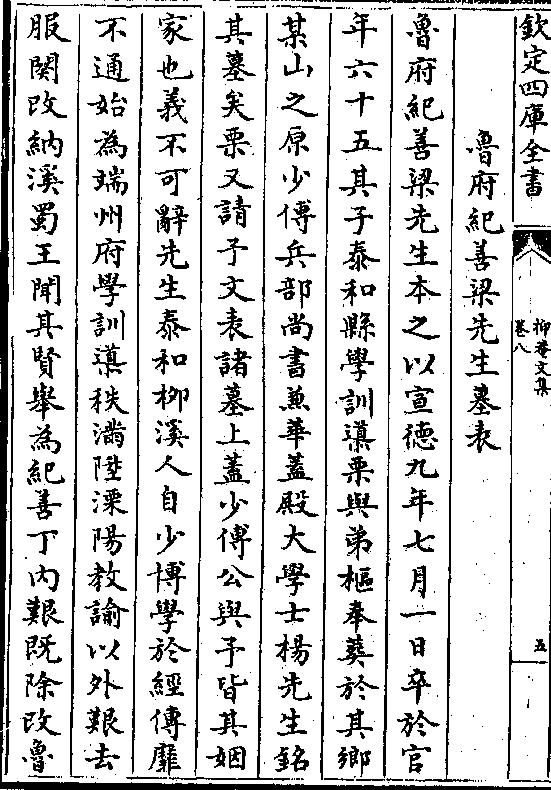 欽定四庫全書
抑菴文集
卷八
五
魯府紀善梁先生墓表
魯府紀善梁先生本之以宣德九年七月一日卒於官
年六十五其子泰和縣學訓導栗與弟樞奉葬於其鄉
某山之原少傅兵部尚書兼華蓋殿大學士楊先生銘
其墓矣栗又請予文表諸墓上蓋少傅公與予皆其姻
家也義不可辭先生泰和栁溪人自少博學於經傳靡
不通始為端州府學訓導秩滿陞溧陽教諭以外艱去
服闋改納溪蜀王聞其賢舉為紀善丁内艱既除改魯